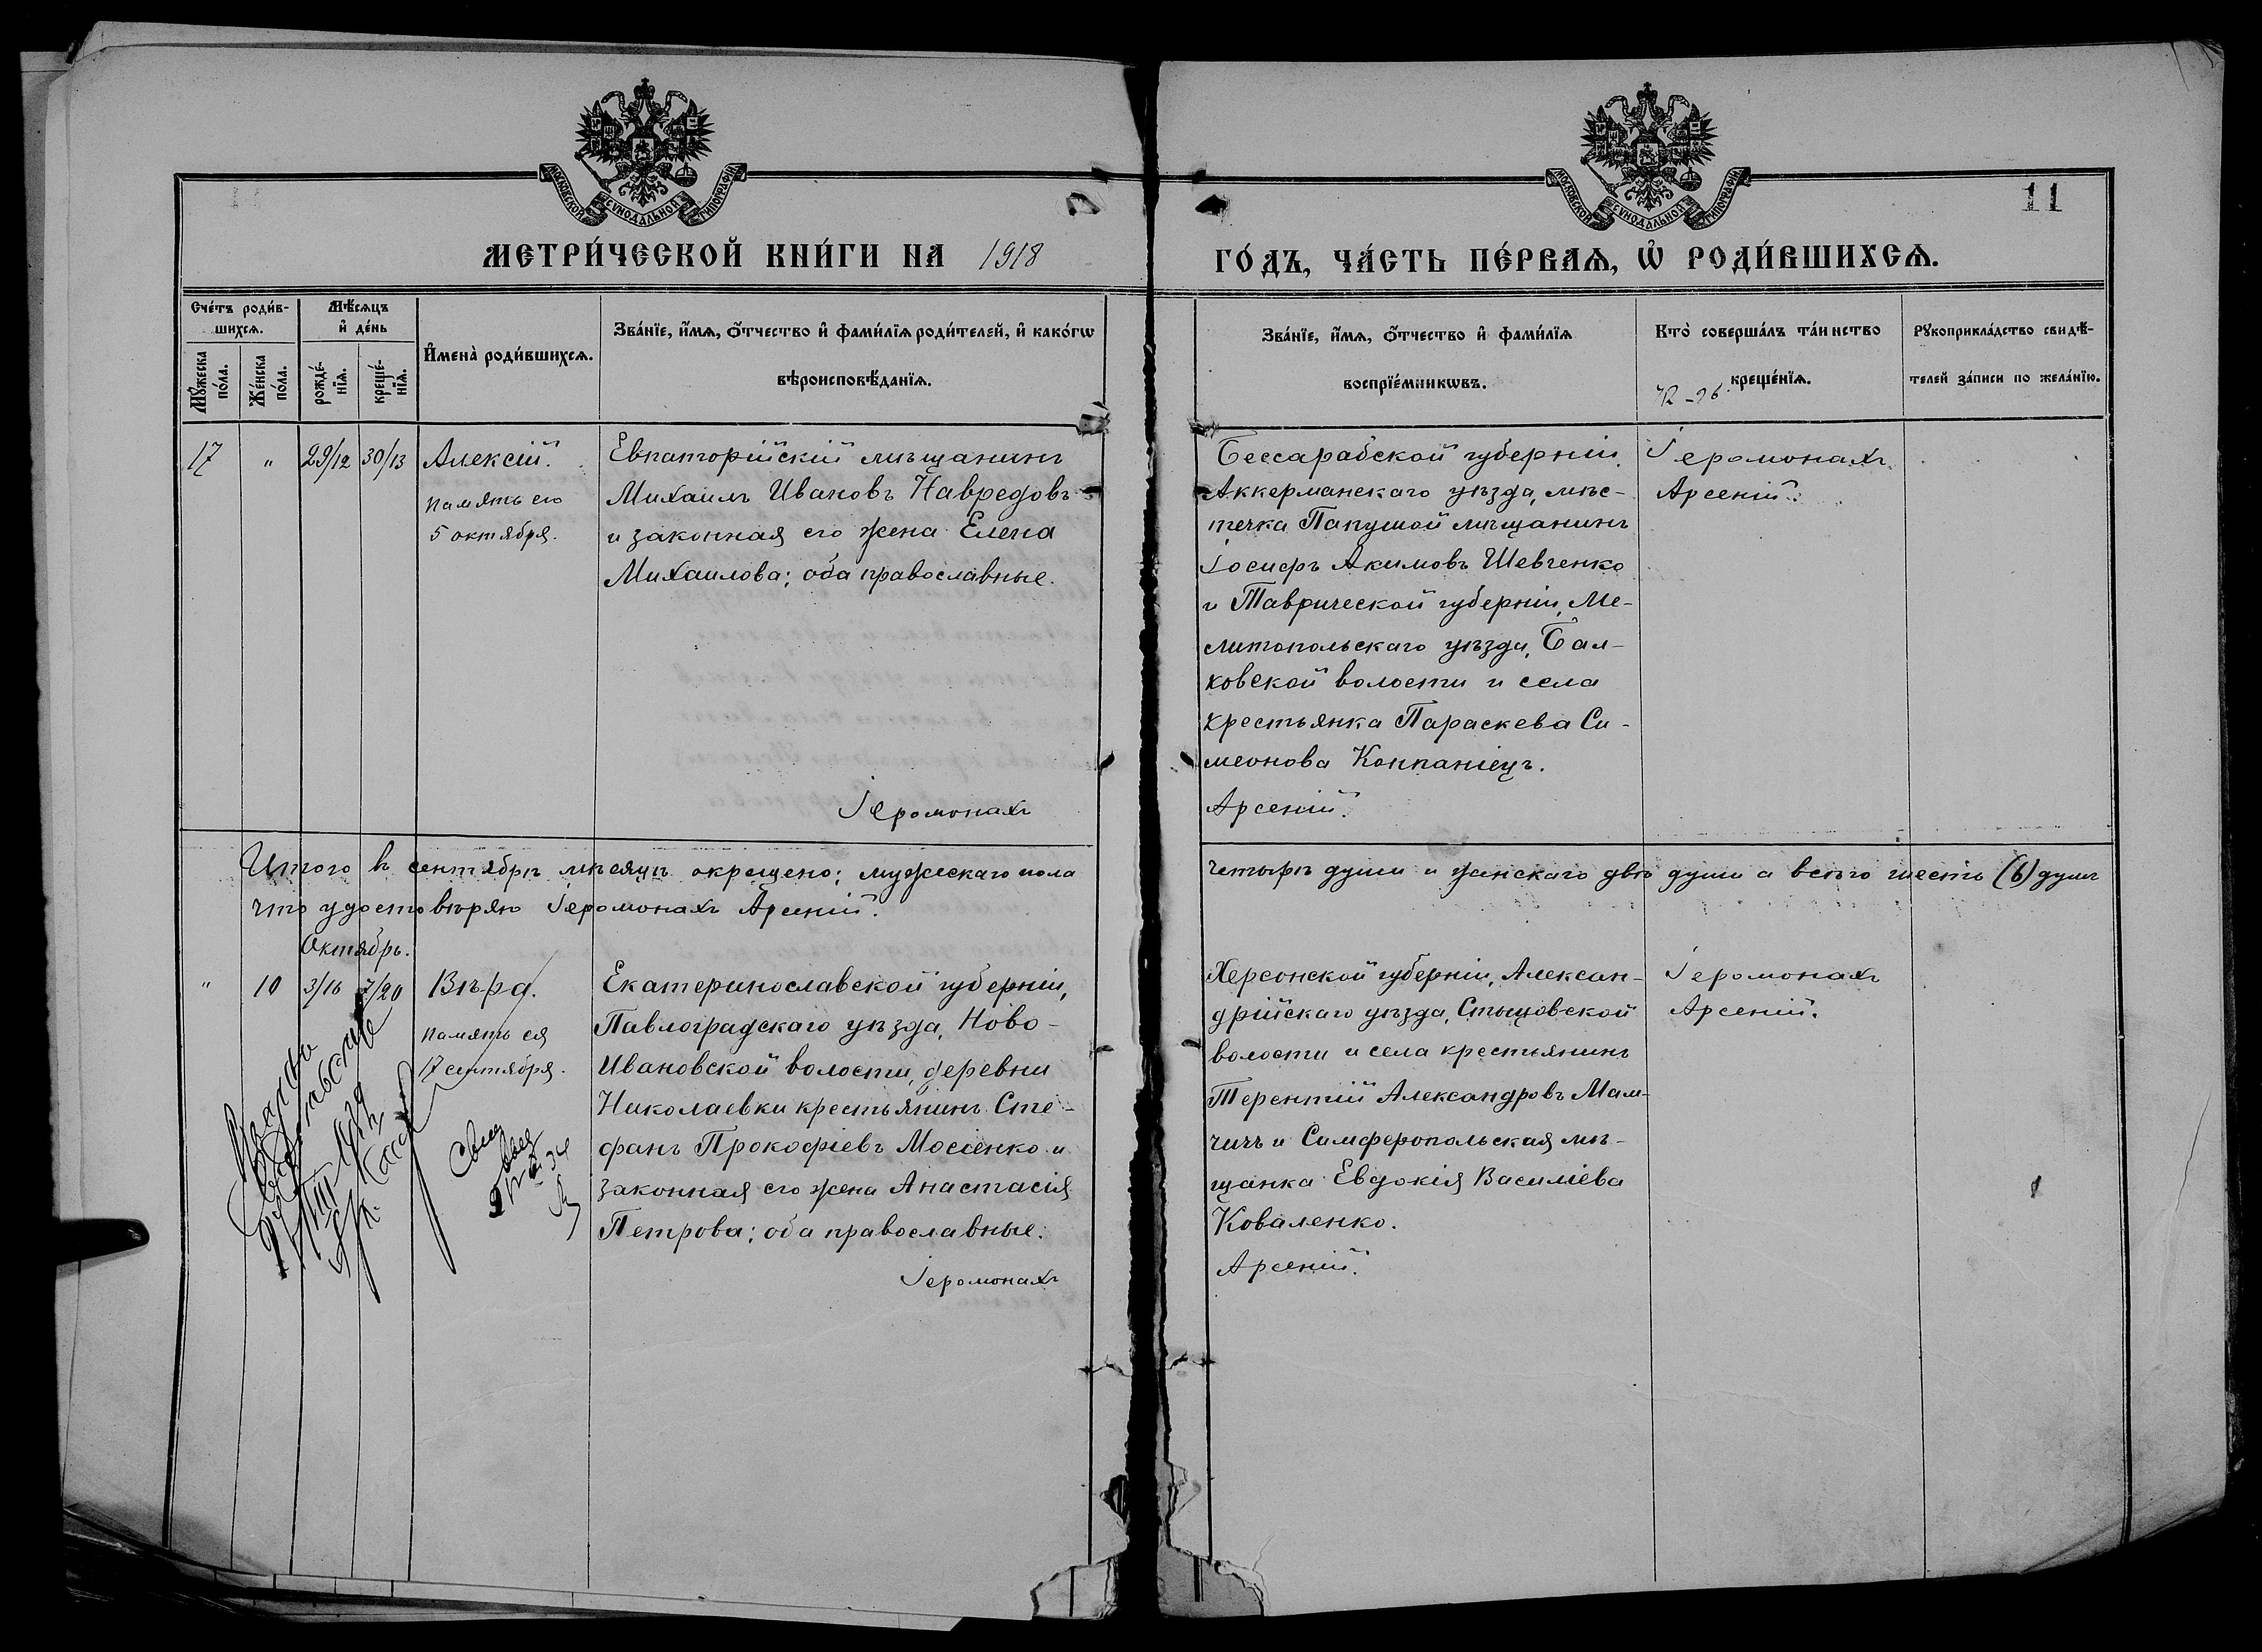 МОСКОВСКОЙ СѴНОДАЛЬНОЙ ТИПОГРАФІИ
МОСКОВСКОЙ СѴНОДАЛЬНОЙ ТИПОГРАФІИ
11
МЕТРИ́ЧЕСКОЙ КНИ́ГИ НА 1918
ГО́ДЪ, ЧА́СТЬ ПЕ́РВАѦ, Ѡ҆ РОДИ́ВШИХСѦ.
Сче́тъ роди́в-
шихсѧ.
Мꙋ́жеска
по́ла.
Же́нска
по́ла.
Мѣ́сѧцъ
и҆ де́нь
рожде́-
нїѧ.
креще́-
нїѧ.
И҆мена̀ роди́вшихсѧ.
Зва́нїе, и҆́мѧ, ѻ҆́тчество и҆ фами́лїѧ роди́телей, и҆ како́гѡ
вѣроисповѣ́данїѧ.
Зва́нїе, и҆́мѧ, ѻ҆́тчество и҆ фами́лїѧ
воспрїе́мникѡвъ.
Кто̀ соверша́лъ та́инство
креще́нїѧ.
Рꙋкоприкла́дство свидѣ́-
телей за́писи по жела́нїю.
17 " 29/12 30/13 Алексій.
Память его
5 октября.
Евпаторійскій мѣщанинъ
Михаилъ Ивановъ Навредовъ
и законная его жена Елена
Михаилова; оба православные.
Іеромонахъ
Бессарабской губерніи,
Аккерманскаго уѣзда, мѣс-
течка Папушой мѣщанинъ
Іосифъ Акимовъ Шевченко
и Таврической губерніи, Ме-
литопольскаго уѣзда, Бал-
ковской волости и села
крестьянка Параскева Си-
меонова Конпаніецъ.
Арсеній.
Іеромонахъ
Арсеній.
Итого въ сентябрѣ мѣсяцѣ окрещено: мужескаго пола
четырѣ души и женскаго двѣ души а всего шесть (6) душъ
что удостовѣряю Іеромонахъ Арсеній.
Октябрь.
" 10 3/16 7/20 Вѣра.
Память ея
17 сентября.
Екатеринославской губерніи,
Павлоградскаго уѣзда, Ново-
Ивановской волости, деревни
Николаевки крестьянинъ Сте-
фанъ Прокофіевъ Мосіенко и
законная его жена Анастасія
Петрова; оба православные.
Іеромонахъ
Херсонской губерніи, Алексан-
дрійскаго уѣзда, Стыцовской
волости и села крестьянинъ
Терентій Александровъ Мам-
чичъ и Симферопольская мѣ-
щанка Евдокія Василіева
Коваленко.
Арсеній.
Іеромонахъ
Арсеній.